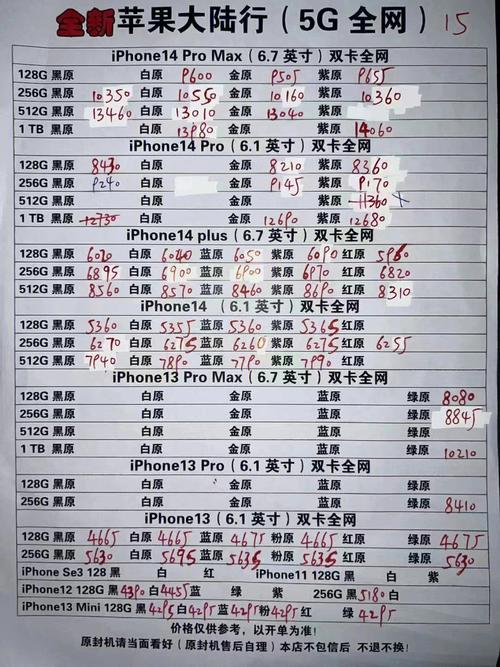 全新苹果大陆行（5G 全网） 15
iPhone14 Pro Max（6.7 英寸）双卡全网
128G 黑原 白原 9600 金原 9505 紫原 9655
256G 黑原 10350 白原 10550 金原 10160 紫原 10360
512G 黑原 13460 白原 13010 金原 13040 紫原
1 TB 黑原 白原 13980 金原 紫原 14060
iPhone14 Pro（6.1 英寸）双卡全网
128G 黑原 8430 白原 金原 8210 紫原 8360
256G 黑原 9240 白原 金原 9145 紫原 9170
512G 黑原 白原 金原 紫原 11360 x
1 TB 黑原 12730 白原 金原 12690 紫原 12680
iPhone14 plus（6.7 英寸）双卡全网
128G 黑原 6020 白原 6040 蓝原 6050 紫原 6090 红原 5960
256G 黑原 6895 白原 6900 蓝原 6900 紫原 6970 红原 6820
512G 黑原 8560 白原 8570 蓝原 8460 紫原 8690 红原 8310
iPhone14 （6.1 英寸）双卡全网
128G 黑原 5360 白原 5355 蓝原 5360 紫原 5365 红原
256G 黑原 6270 白原 6275 蓝原 6260 紫原 6275 红原 6255
512G 黑原 7940 白原 7890 蓝原 7790 紫原 7990 红原
iPhone13 Pro Max（6.7 英寸）双卡全网
128G 黑原 白原 金原 蓝原 绿原 8080
256G 黑原 白原 金原 蓝原 绿原 8845
512G 黑原 白原 金原 蓝原 绿原
1 TB 黑原 白原 金原 蓝原 绿原 10210
iPhone13 Pro（6.1 英寸）双卡全网
128G 黑原 白原 金原 蓝原 绿原
256G 黑原 白原 金原 蓝原 绿原 8410
iPhone13（6.1 英寸）双卡全网
128G 黑原 4665 白原 4665 蓝原 4675 粉原 4665 红原 绿原 4675
256G 黑原 5630 白原 5695 蓝原 5635 粉原 5635 红原 绿原 5630
iPhone Se3 128 黑 白 红 iPhone11 128G 黑 白 紫
iPhone12 128G 黑 4390 白 4455 蓝 绿 紫 256G 黑 5180 白
iPhone13 Mini 128G 黑 4295 白 4295 蓝 4295 粉 4295 红 绿 4295
价格仅供参考，以开单为准！
原封机请当面看好（原封机售后自理）本店不包信后 不退不换！